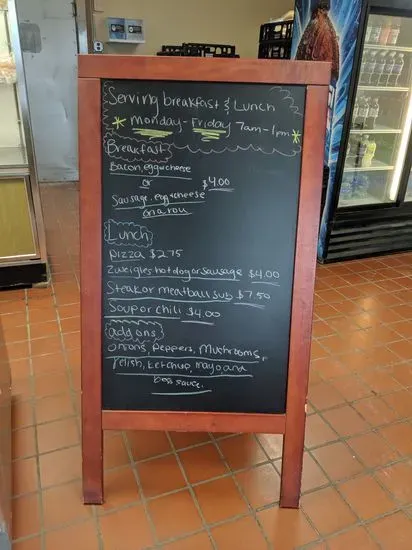 Serving breakfast & Lunch
* Monday - Friday 7am - 1pm *
Breakfast
Bacon, egg & cheese
or $4.00
Sausage, egg & cheese
on a roll
Lunch
Pizza $2.75
Zweigles hot dog or sausage $4.00
Steak or meatball sub $7.50
Soup or chili $4.00
add ons
Onions, Peppers, Mushrooms,
relish, ketchup, mayo and
sauce.